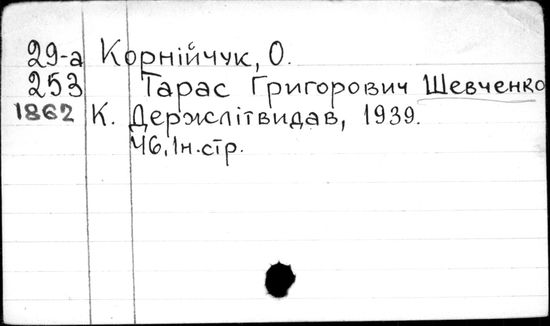 29-а Корнійчук, О.
253 Тарас Григорович Шевченко
1862 К. Держлітвидав, 1939.
46, 1н.стр.